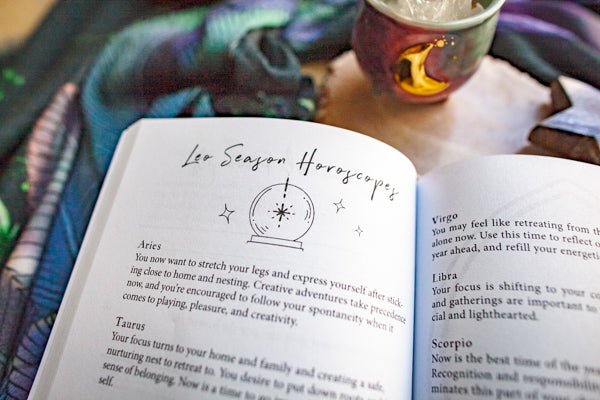 Leo Season Horoscopes
Aries
You now want to stretch your legs and express yourself after stick-
ing close to home and nesting. Creative adventures take precedence
now, and you're encouraged to follow your spontaneity when it
comes to playing, pleasure, and creativity.
Taurus
Your focus turns to your home and family and creating a safe,
nurturing nest to retreat to. You desire to put down roots and
sense of belonging. Now is a time to go
self.
Virgo
You may feel like retreating from th
alone now. Use this time to reflect o
year ahead, and refill your energeti
Libra
Your focus is shifting to your co
and gatherings are important to
cial and lighthearted.
Scorpio
Now is the best time of the ye
Recognition and responsibility
minates this part of your ch